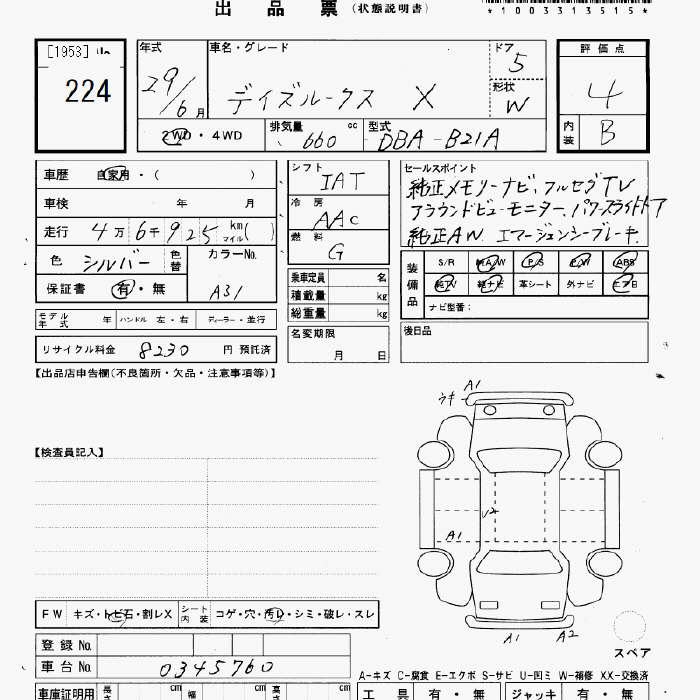 出品票（状態説明書）
*1003313515*
[1953] 山
224
年式
29/6月
車名・グレード
デイズルークス X
ドア
5
形状
W
評価点
4
内装
B
2WD・4WD
排気量
660 cc
型式
DBA-B21A
車歴 自家用・( )
車検 年 月
走行 4万6千925 km マイル( )
色 シルバー 色替
カラーNo.
A31
保証書 有・無
モデル年式 年 ハンドル 左・右 ディーラー・並行
リサイクル料金 8230 円 預託済
シフト
IAT
冷房
AAC
燃料
G
乗車定員 名
積載量 kg
総重量 kg
名変期限
月 日
セールスポイント
純正メモリーナビ、フルセグTV
アラウンドビューモニター、パワースライドドア
純正AW エマージェンシーブレーキ
装備品
S/R 純A/W P/S P/W ABS
純TV 純ナビ 革シート 外ナビ エアB
ナビ型番：
後日品
【出品店申告欄(不良箇所・欠品・注意事項等)】
【検査員記入】
A1
ウキ
U2
A1
A1 A2
スペア
FW キズ・トビ石・割レX
シート内装 コゲ・穴・汚レ・シミ・破レ・スレ
登録 No.
車台 No. 0345760
A-キズ C-腐食 E-エクボ S-サビ U-凹ミ W-補修 XX-交換済
車庫証明用 長さ cm 幅 cm 高さ cm
工具 有・無 ジャッキ 有・無